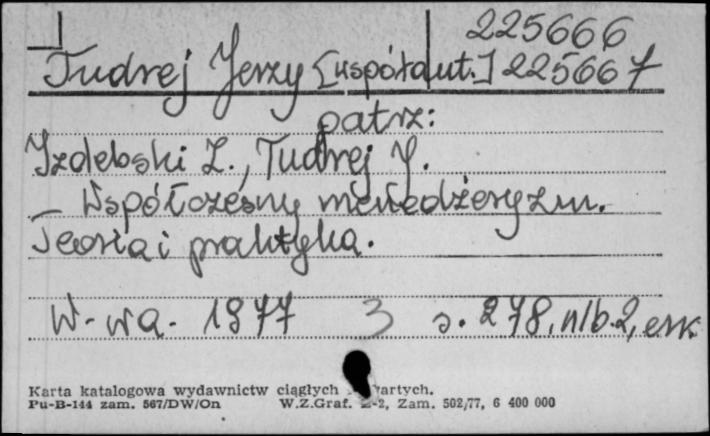 225666
Tudrej Jerzy [współaut.] 225667
patrz:
Izdebski Z., Tudrej J.
– Współczesny menedżeryzm.
Teoria i praktyka.
W-wa. 1977 3 s. 278, nlb. 2, err.
Karta katalogowa wydawnictw ciągłych
Pu-B-144 zam. 567/DW/On W.Z.Graf. Z-2, Zam. 502/77, 6 400 000